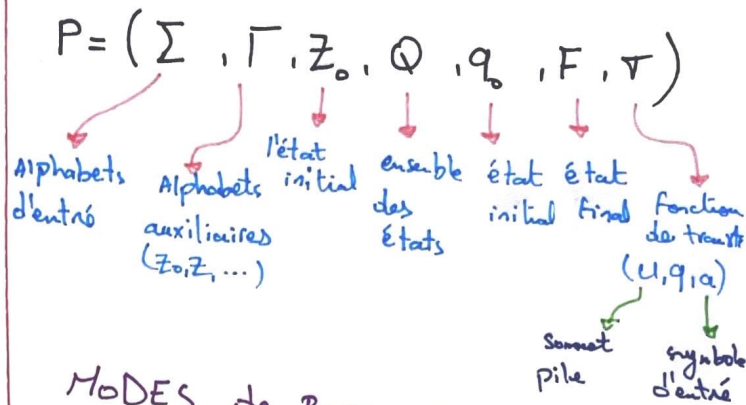 P = (Σ, Γ, Z₀, Q, q₀, F, σ)
Alphabets d'entré
Alphabets auxiliaires (Z₀, Z, ...)
l'état initial
ensemble des états
état initial
état final
fonction de transit
(u, q, a)
sommet pile
symbole d'entré
MODES de